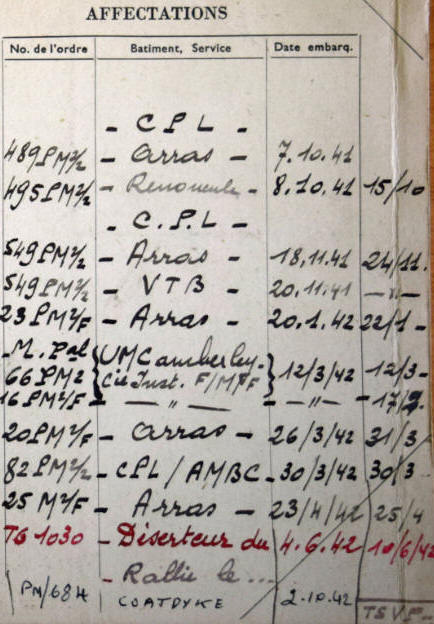 AFFECTATIONS
No. de l'ordre Batiment, Service Date embarq.
- CPL -
489PM²/₂ - Arras - 7.10.41
495PM²/₂ - Renoncule - 8.10.41 15/10
- C.P.L -
549PM²/₂ - Arras - 18.11.41 24/11.
549PM²/₂ - VTB - 20.11.41 — " —
23PM²/F - Arras - 20.1.42 22/1 -
M. Pal UMCamberley.
66PM2 Cie Inst. F/MFF 12/3/42 12/3-
16PM²/F - — " — - — " — - 17/
20PM²/F - Arras - 26/3/42 31/3
82PM²/₂ - CPL/AMBC - 30/3/42 30/3
25 M²/F - Arras - 23/4/42 25/4
TG 1030 - Déserteur du 4.6.42 10/6/42
- Rallié le ...
PM/684 COATDYKE 2.10.42
TSVP...